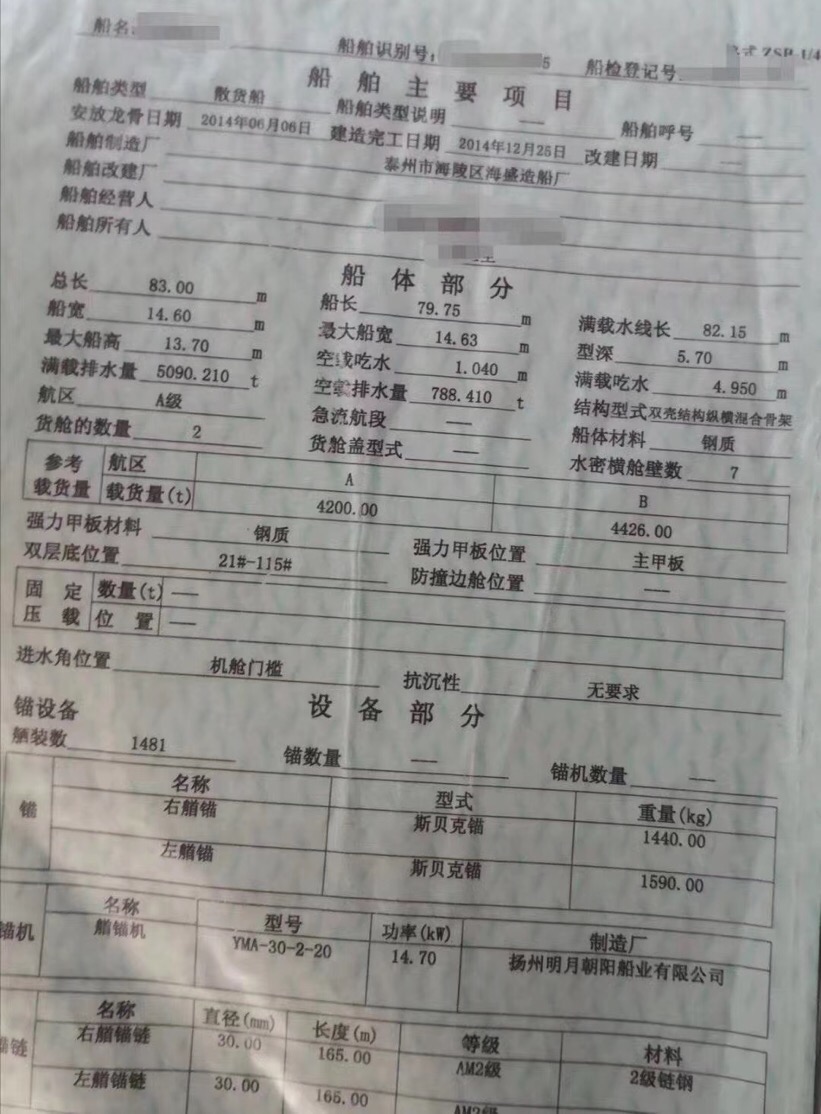 船名
船舶识别号: 5 船检登记号
船舶主要项目
船舶类型 散货船 船舶类型说明 — 船舶呼号 —
安放龙骨日期 2014年06月06日 建造完工日期 2014年12月25日 改建日期 —
船舶制造厂 泰州市海陵区海盛造船厂
船舶改建厂
船舶经营人
船舶所有人
船体部分
总长 83.00 m 船长 79.75 m 满载水线长 82.15 m
船宽 14.60 m 最大船宽 14.63 m 型深 5.70 m
最大船高 13.70 m 空载吃水 1.040 m 满载吃水 4.950 m
满载排水量 5090.210 t 空载排水量 788.410 t 结构型式 双壳结构纵横混合骨架
航区 A级 急流航段 — 船体材料 钢质
货舱的数量 2 货舱盖型式 — 水密横舱壁数 7
参考载货量 航区 A B
载货量(t) 4200.00 4426.00
强力甲板材料 钢质 强力甲板位置 主甲板
双层底位置 21#-115# 防撞边舱位置 —
固定压载 数量(t) —
位置 —
进水角位置 机舱门槛 抗沉性 无要求
设备部分
锚设备
舾装数 1481 锚数量 — 锚机数量 —
锚 名称 型式 重量(kg)
右艏锚 斯贝克锚 1440.00
左艏锚 斯贝克锚 1590.00
锚机 名称 型号 功率(kW) 制造厂
艏锚机 YMA-30-2-20 14.70 扬州明月朝阳船业有限公司
锚链 名称 直径(mm) 长度(m) 等级 材料
右艏锚链 30.00 165.00 AM2级 2级链钢
左艏锚链 30.00 165.00 AM2级